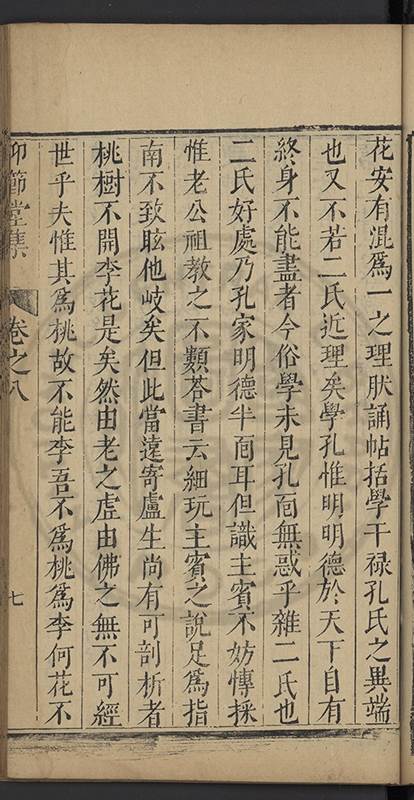 花安有混爲一之理朕誦帖括學干禄孔氏之異端
也又不若二氏近理矣學孔惟明明德於天下自有
終身不能盡者今俗學未見孔面無惑乎雜二氏也
二氏好處乃孔家明德半面耳但識主賓不妨慱採
惟老公祖教之不纇荅書云細玩主賓之說足爲指
南不致眩他岐矣但此當遠寄盧生尚有可剖析者
桃樹不開李花是矣然由老之虛由佛之無不可經
世乎夫惟其爲桃故不能李吾不爲桃爲李何花不
仰節堂集
卷之八
七